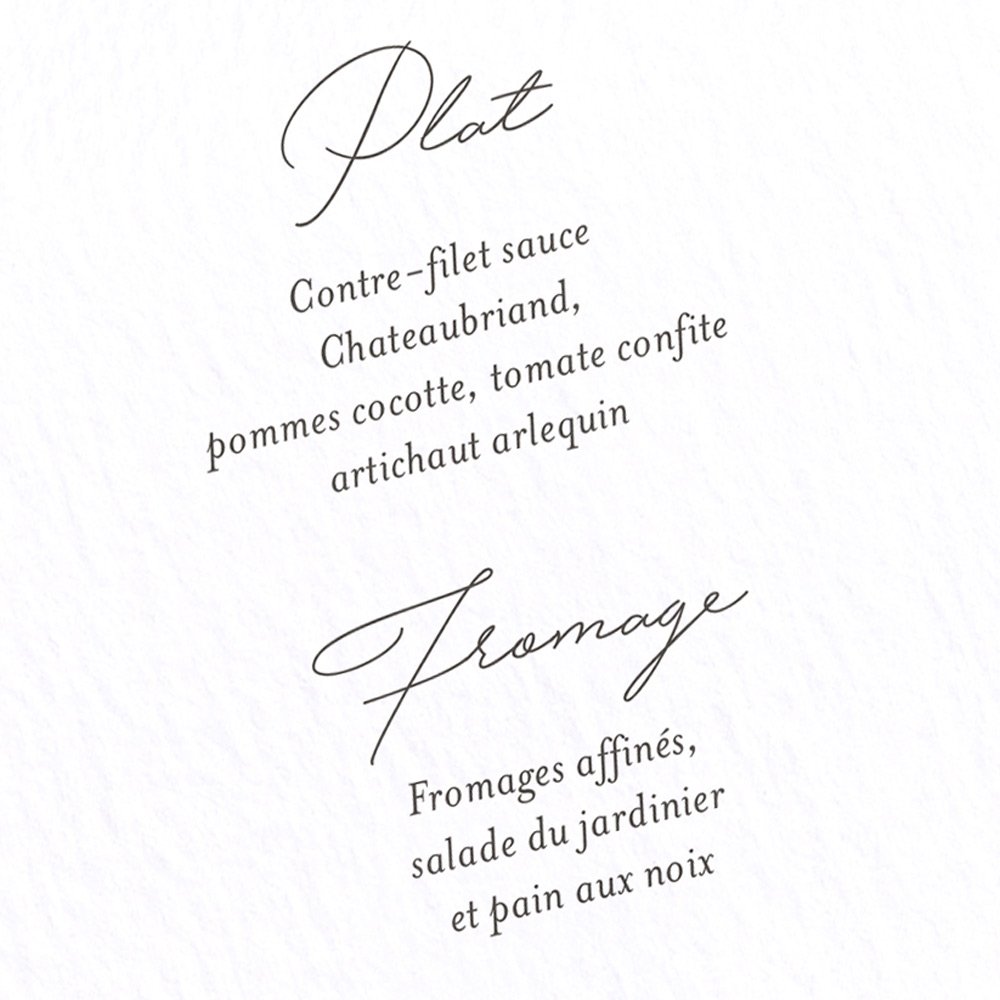 Plat
Contre-filet sauce
Chateaubriand,
pommes cocotte, tomate confite
artichaut arlequin
Fromage
Fromages affinés,
salade du jardinier
et pain aux noix